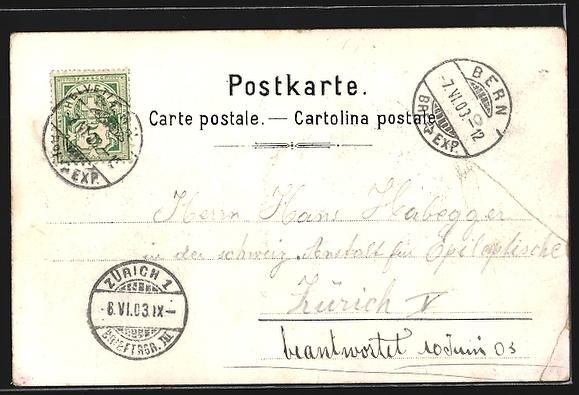 Postkarte.
Carte postale. — Cartolina postale
HELVETIA
5
EXP.
BERN 1
-7.VI.03.-12
BRF. EXP.
Herrn Hans Habegger
in der schweiz. Anstalt für Epileptische
Zürich V
ZÜRICH 1
-8.VI.03.IX-
BRIEFTRGR. III
beantwortet 10 Juni 03